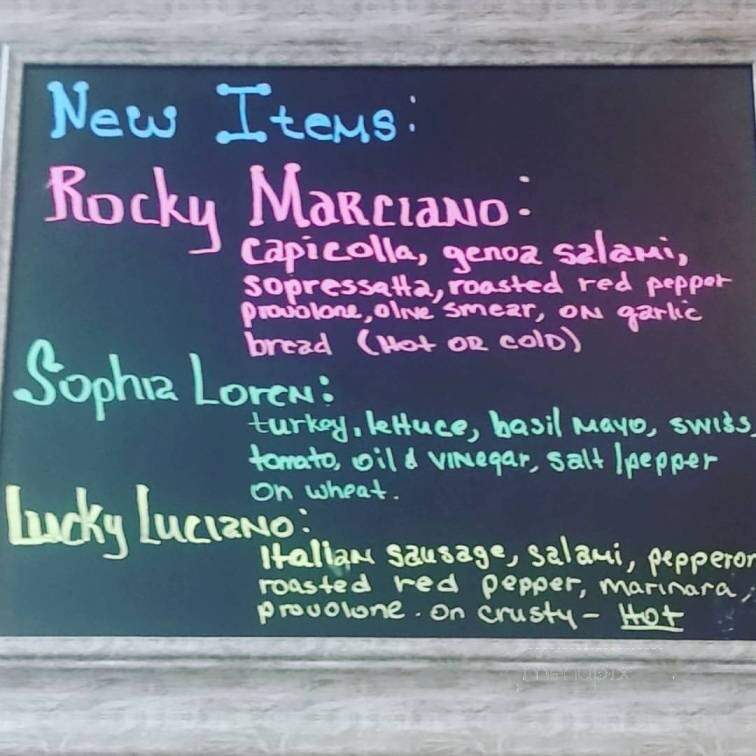 New Items:
Rocky Marciano:
capicolla, genoa salami,
sopressatta, roasted red pepper
provolone, olive smear, on garlic
bread (Hot or cold)
Sophia Loren:
turkey, lettuce, basil mayo, swiss,
tomato, oil & vinegar, salt/pepper
on wheat.
Lucky Luciano:
Italian sausage, salami, pepperon
roasted red pepper, marinara,
provolone. on crusty - Hot
menupix